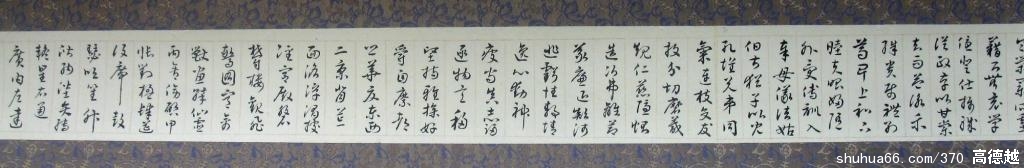 籍甚無竟學
優登仕攝職
從政存以甘棠
去而益詠樂
殊貴賤禮別
尊卑上和下
睦夫唱婦隨
外受傅訓入
奉母儀諸姑
伯叔猶子比兒
孔懷兄弟同
氣連枝交友
投分切磨箴
規仁慈隱惻
造次弗離節
義廉退顛沛
匪虧性靜情
逸心動神
疲守真志滿
逐物意移
堅持雅操好
爵自縻都
邑華夏東西
二京背芒
面洛浮渭據
涇宮殿盤
鬱樓觀飛
驚圖寫禽
獸畫彩仙靈
丙舍傍啟甲
帳對楹肆筵
設席鼓
瑟吹笙升
階納陛弁
轉疑星右通
廣內左達
shuhua66.com/370 高德越